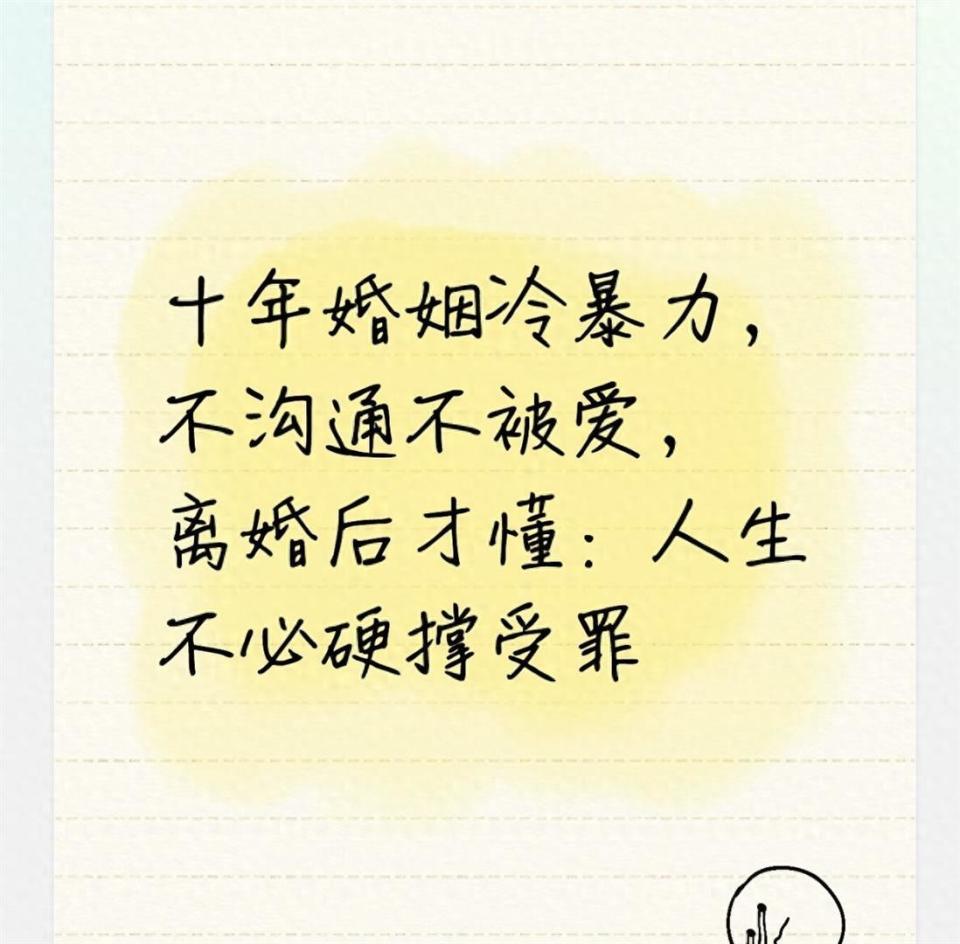 十年婚姻冷暴力，
不沟通不被爱，
离婚后才懂：人生
不必硬撑受罪